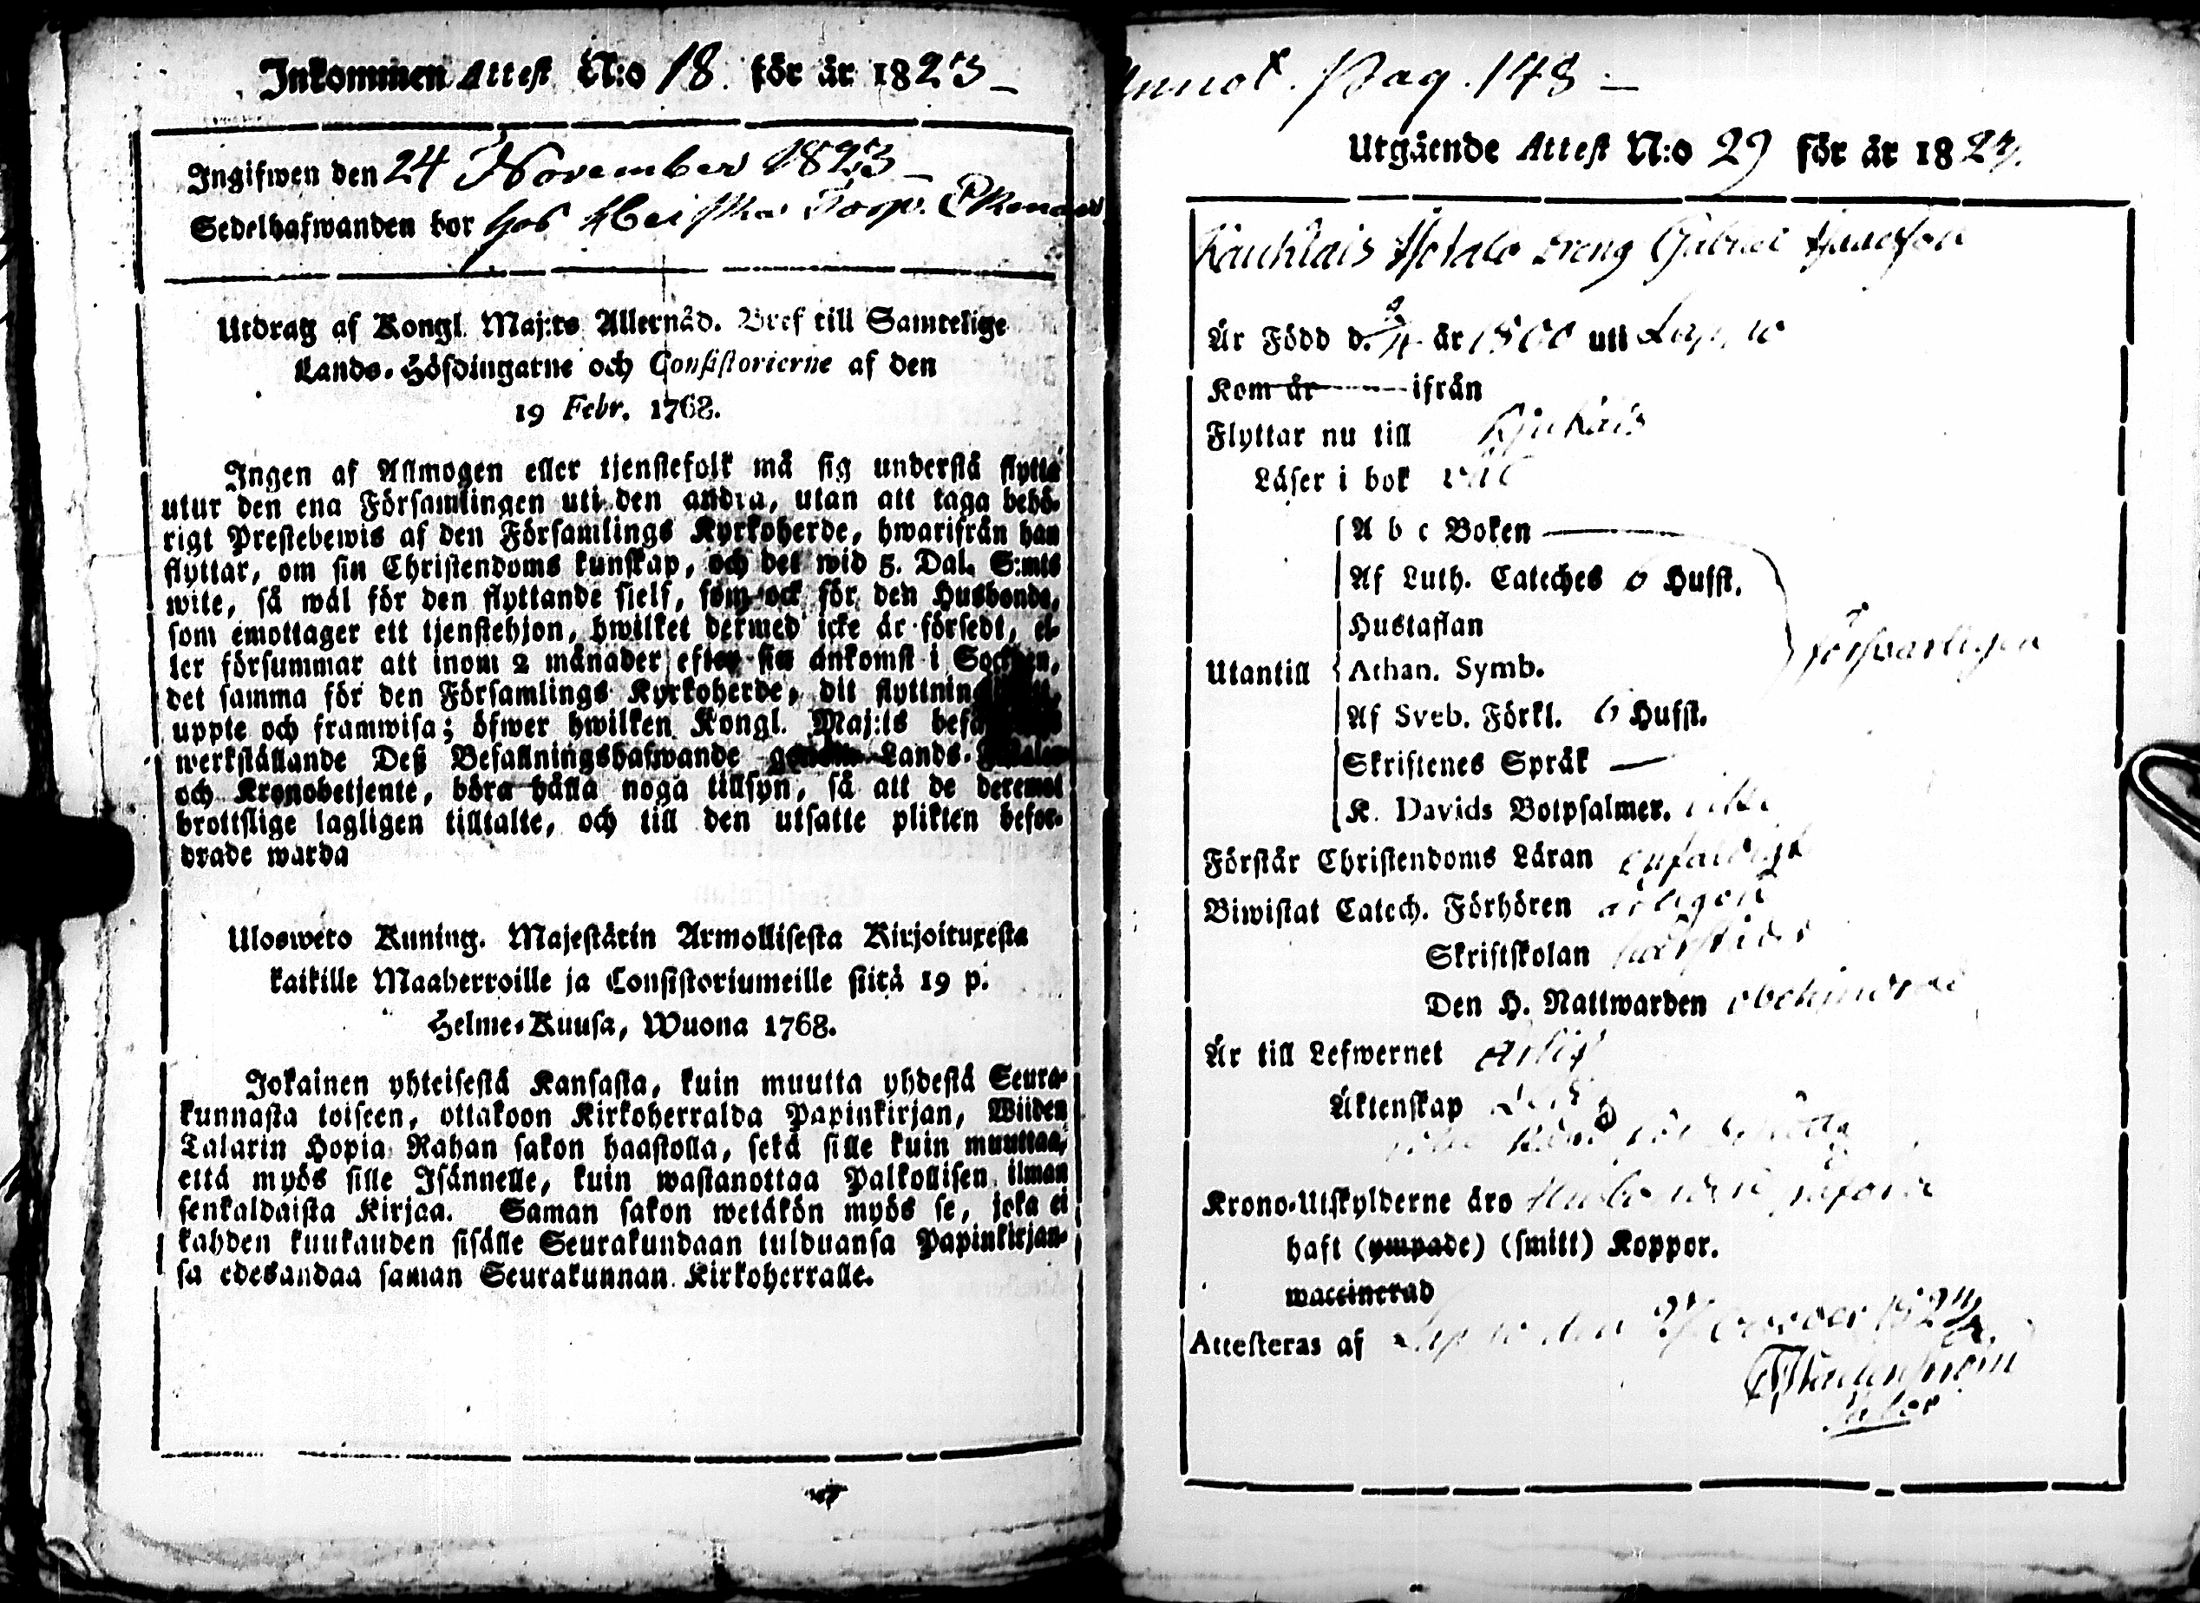 Inkommen Attest N:o 18 för år 1823
Ingifwen den 24 November 1823
Sedelhafwanden bor hos
Utdrag af Kongl. Maj:ts Allernåd. Bref till Samtelige
Lands-Höfdingarne och Consistorierne af den
19 Febr. 1768.
Ingen af Allmogen eller tjenstefolk må sig understå flytta
utur den ena Församlingen uti den andra, utan att taga behö-
rigt Prestebewis af den Församlings Kyrkoherde, hwarifrån han
flyttar, om sin Christendoms kunskap, och det wid 5. Dal. S:mts
wite, så wäl för den flyttande sielf, som ock för den Husbonde,
som emottager ett tjenstehjon, hwilket dermed icke är försedt, el-
ler försummar att inom 2 månader efter sin ankomst i Socknen,
det samma för den Församlings Kyrkoherde, dit flyttning
uppte och framwisa; öfwer hwilken Kongl. Maj:ts
werkställande Deß Befallningshafwande genom Lands-
och Kronobetjente, böra hålla noga tillsyn, så att de deremot
brottslige lagligen tilltalte, och till den utsatte plikten befor-
drade warda
Ulosweto Kuning. Majestätin Armollisesta Kirjoituxesta
kaikille Maaherroille ja Consistoriumeille siitä 19 p.
Helme-Kuusa, Wuona 1768.
Jokainen yhteisestä Kansasta, kuin muutta yhdestä Seura-
kunnasta toiseen, ottakoon Kirkoherralda Papinkirjan, Wiiden
Talarin Hopia Rahan sakon haastolla, sekä sille kuin muuttaa,
että myös sille Isännelle, kuin wastanottaa Palkollisen ilman
senkaldaista Kirjaa. Saman sakon wetäkön myös se, joka ei
kahden kuukauden sisälle Seurakundaan tulduansa Papinkirjan-
sa edesandaa saman Seurakunnan Kirkoherralle.
Annot. Pag. 148
Utgående Attest N:o 29 för år 1823.
Kauklais dreng Gabriel
Är Född d. år 1800 uti
Kom år ifrån
Flyttar nu till Kjukais
Läser i bok väl
A b c Boken
Af Luth. Cateches 6 Hufst.
Hustaflan
Utantill Athan. Symb. försvarligen
Af Sveb. Förkl. 6 Hufst.
Skriftenes Språk
K. Davids Botpsalmer.
Förstår Christendoms Läran enfaldigt
Biwistat Catech. Förhören årligen
Skriftskolan
Den H. Nattwarden obehindrad
Är till Lefwernet ärlig
Äktenskap ledig
Krono-Utskylderne äro
haft (ympade) (smitt) Koppor.
waccinerad
Attesteras af